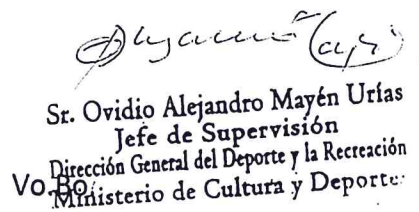 Sr. Ovidio Alejandro Mayén Urías
Jefe de Supervisión
Dirección General del Deporte y la Recreación
Vo.Bo.
Ministerio de Cultura y Deporte